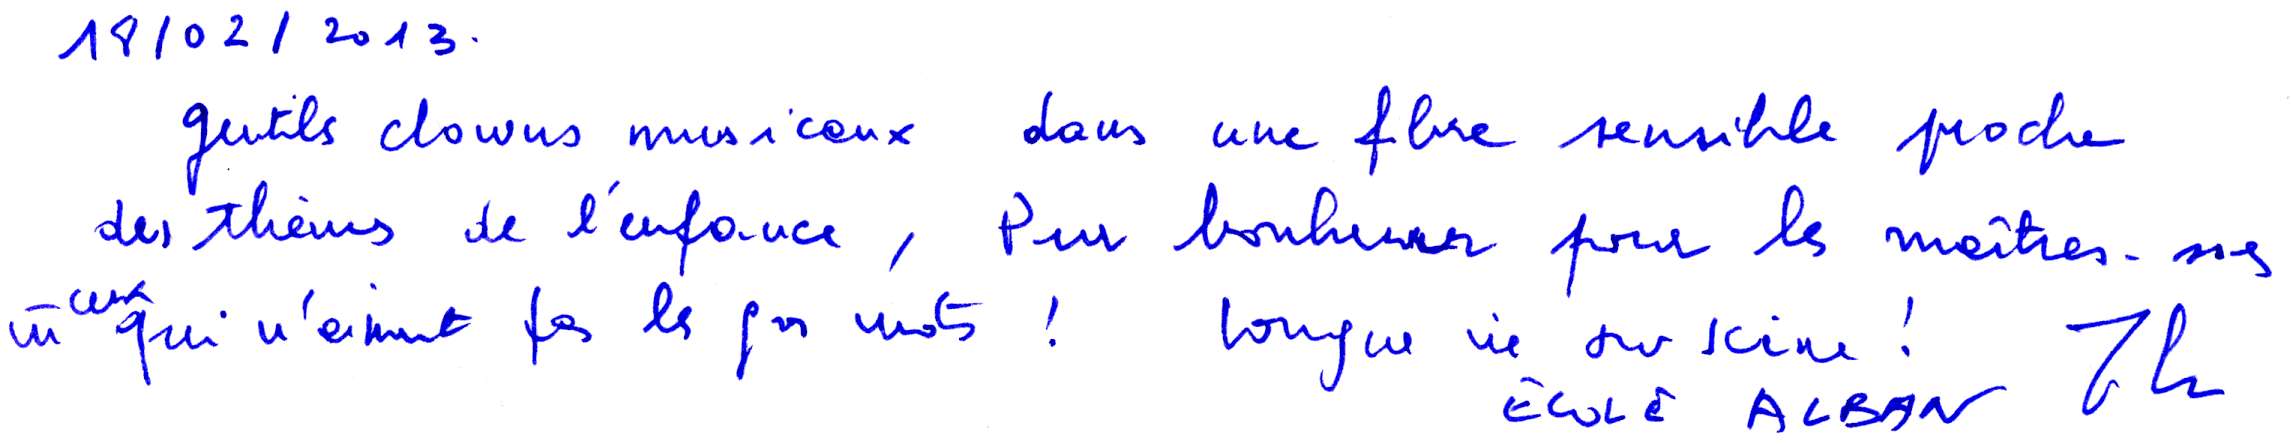 18/02/2013.
gentils clowns musicaux dans une fibre sensible proche
des thèmes de l'enfance, Pur bonheur pour les maîtres-sses
m̄ ceux qui n'aiment pas les gros mots ! Longue vie sur scène !
ÉCOLE ALBAN